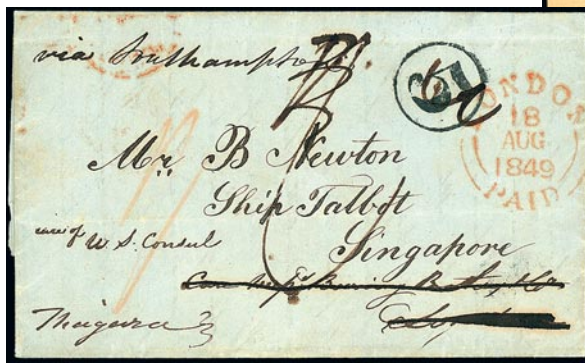 via Southampton
21
LONDON
18
AUG
1849
PAID
Mr. B Newton
Ship Talbot
Singapore
care of U.S. Consul
Care Baring
Niagara